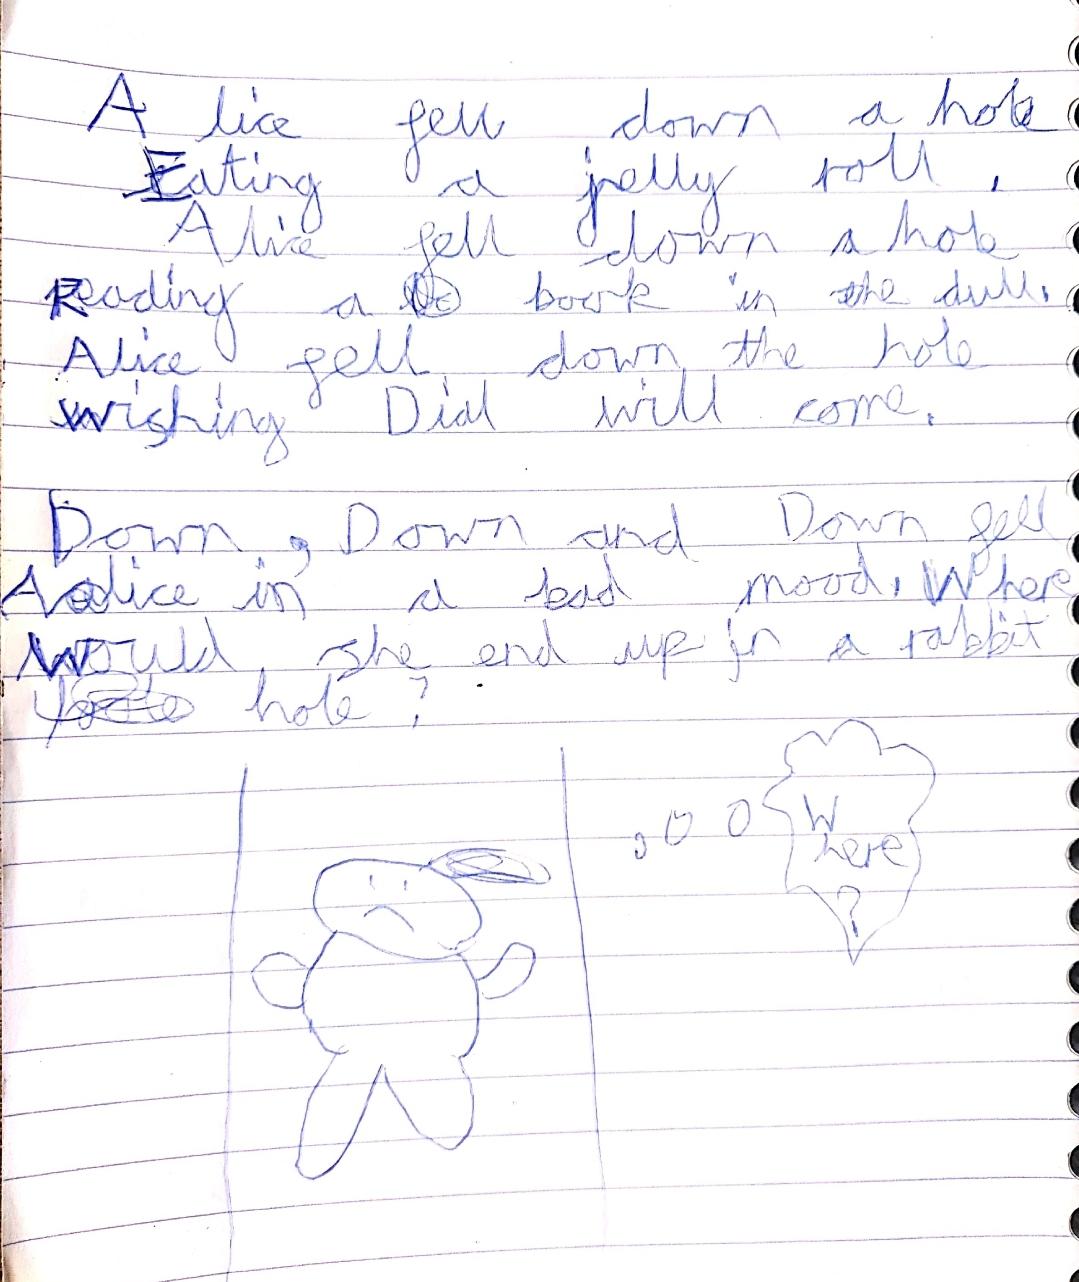 Alice fell down a hole
Eating a jelly roll.
Alice fell down a hole
Reading a book in the dull.
Alice fell down the hole
wishing Dial will come.
Down, Down and Down fell
Aalice in a bad mood. Where
Would she end up in a rabbit
hole?
W
here
?